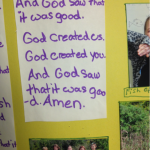 And God saw that
it was good.
God created es.
God created you.
And God saw
that it was goo
-d. Amen.